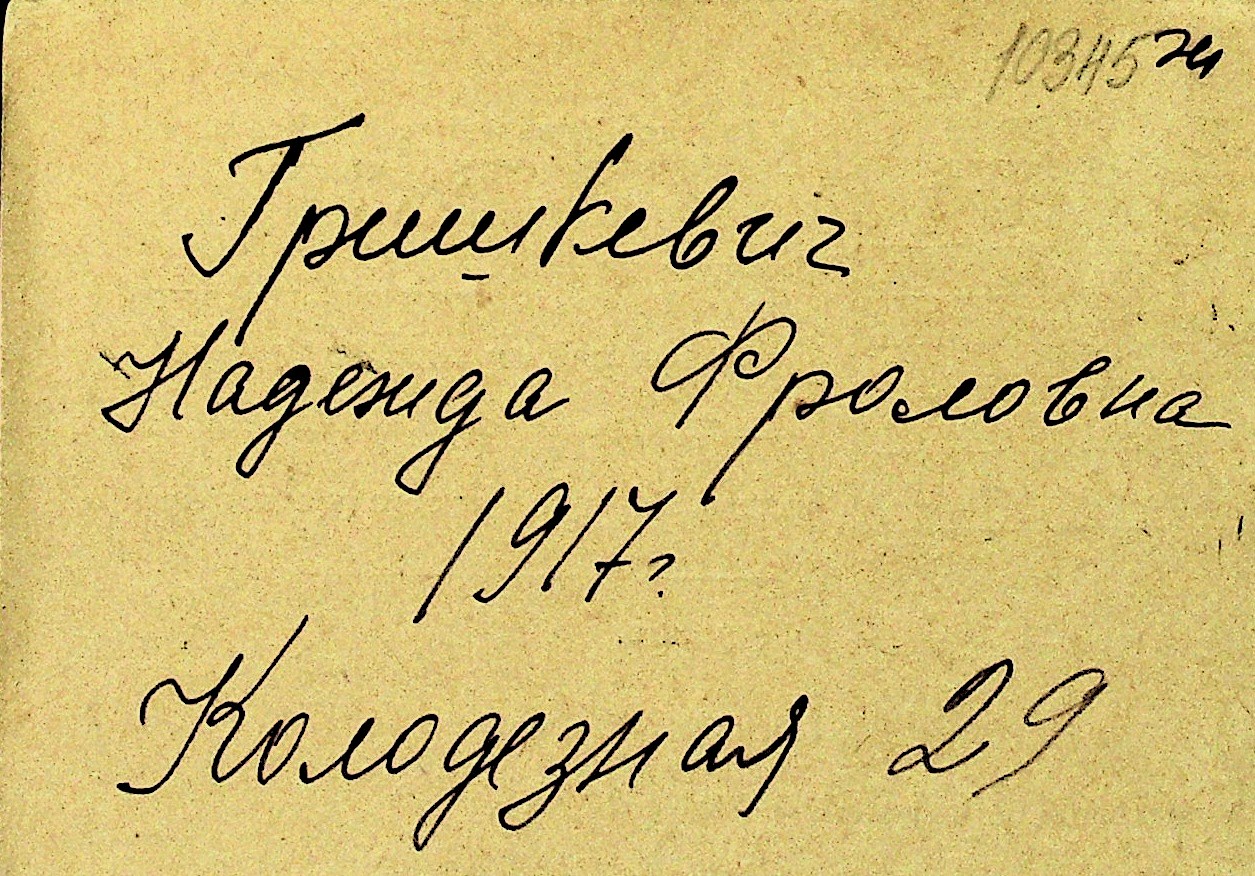 10345 ж
Гришкевич
Надежда Фроловна
1917г
Колодезная 29